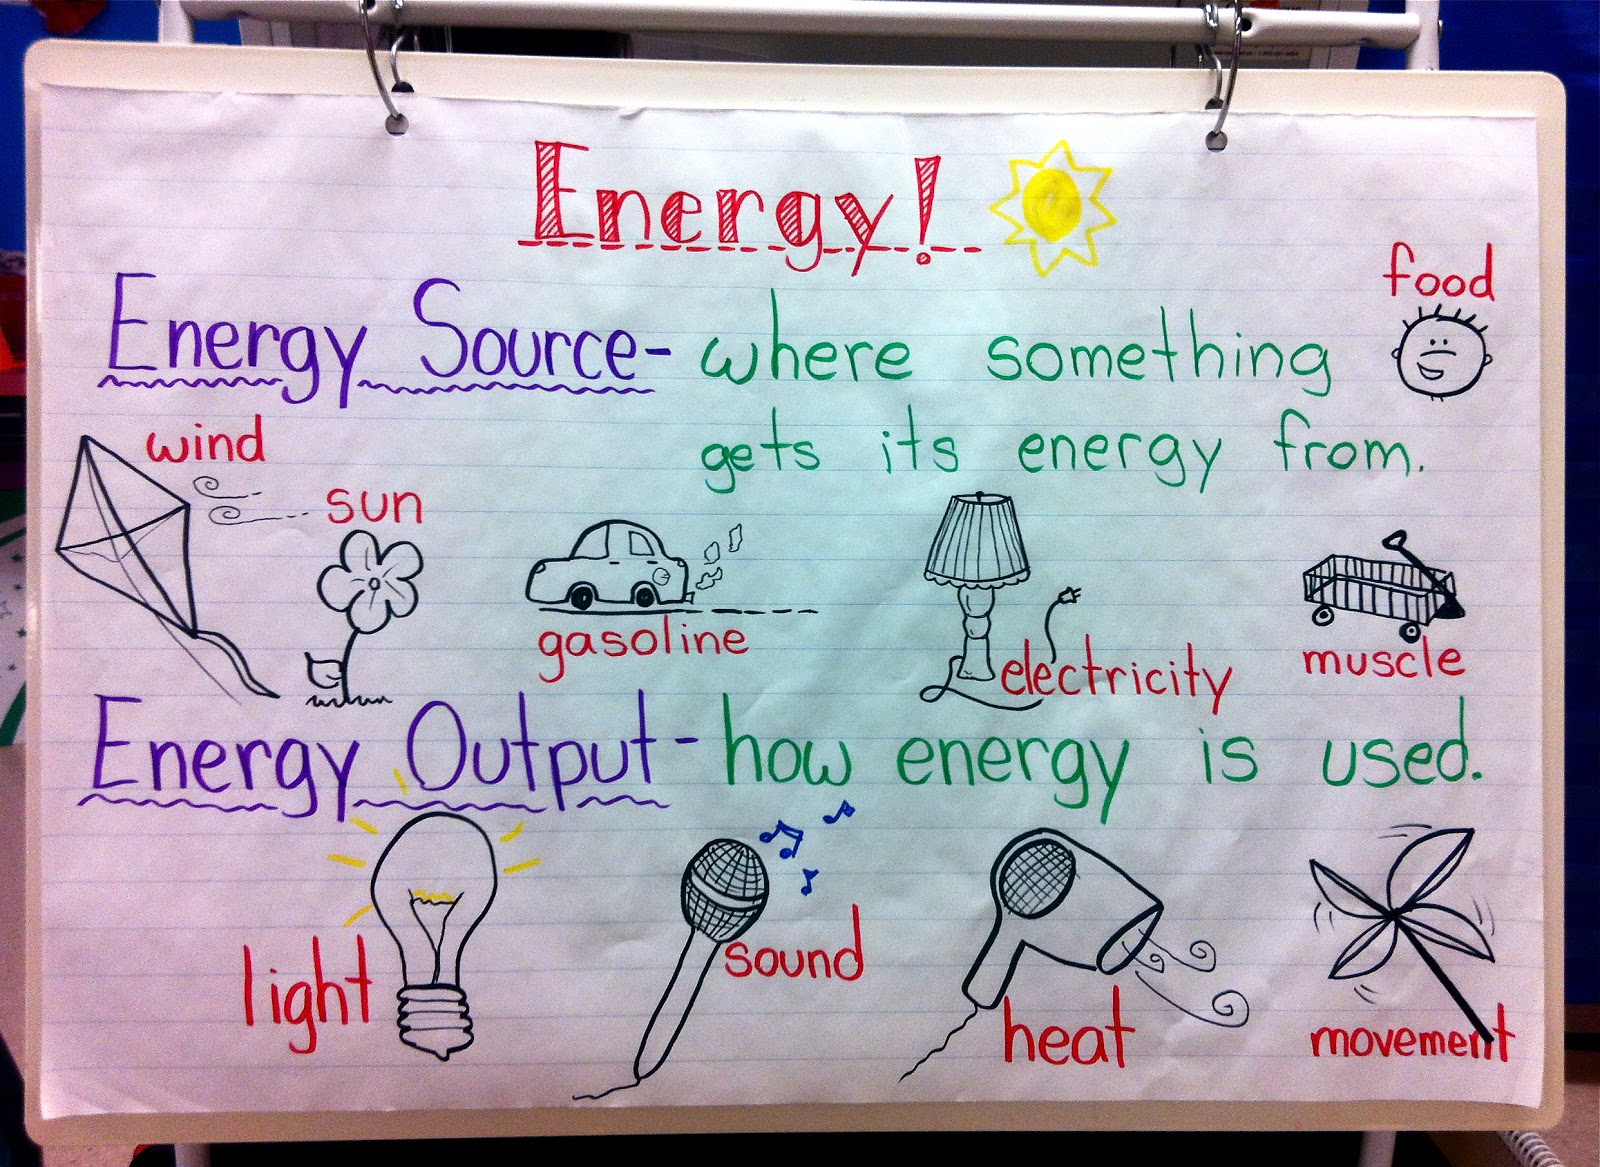 Energy!
food
Energy Source- where something
gets its energy from.
wind
sun
gasoline
electricity
muscle
Energy Output- how energy is used.
light
sound
heat
movement